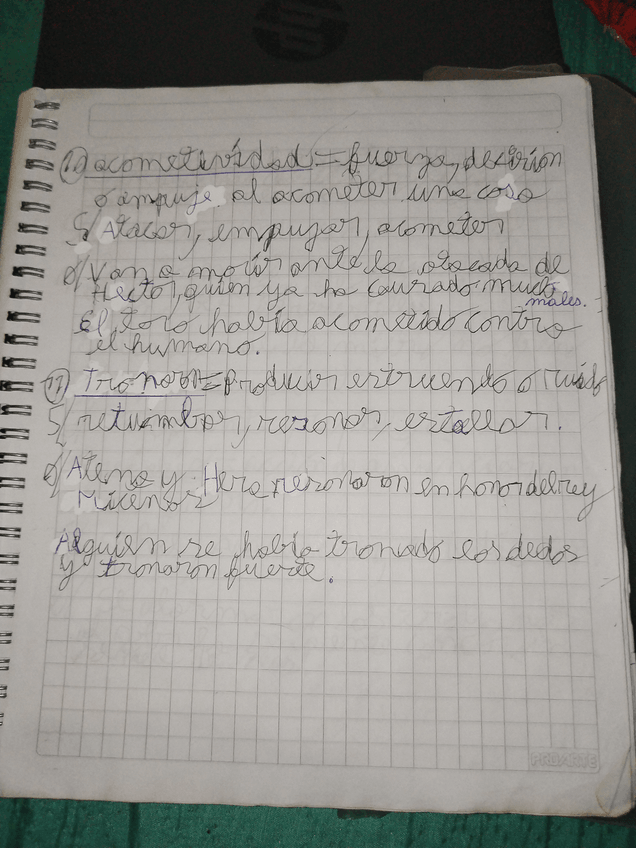 hp
10) acometividad = fuerza, decirion
o ampuje al acometer una cosa
S/ Atacar, empujar, acometer
o/ Van a morir ante la atacada de
Hector, quien ya ha caurado mucho
males.
El toro había acometido contro
el humano.
11) Tronar = Producir estruendo o ruido
S/ retumbar, resonar, estallar.
o/ Atena y Hera resonaron en honor del rey
Micenas
Alguien se había tronado los dedos
y tronaron fuerte.